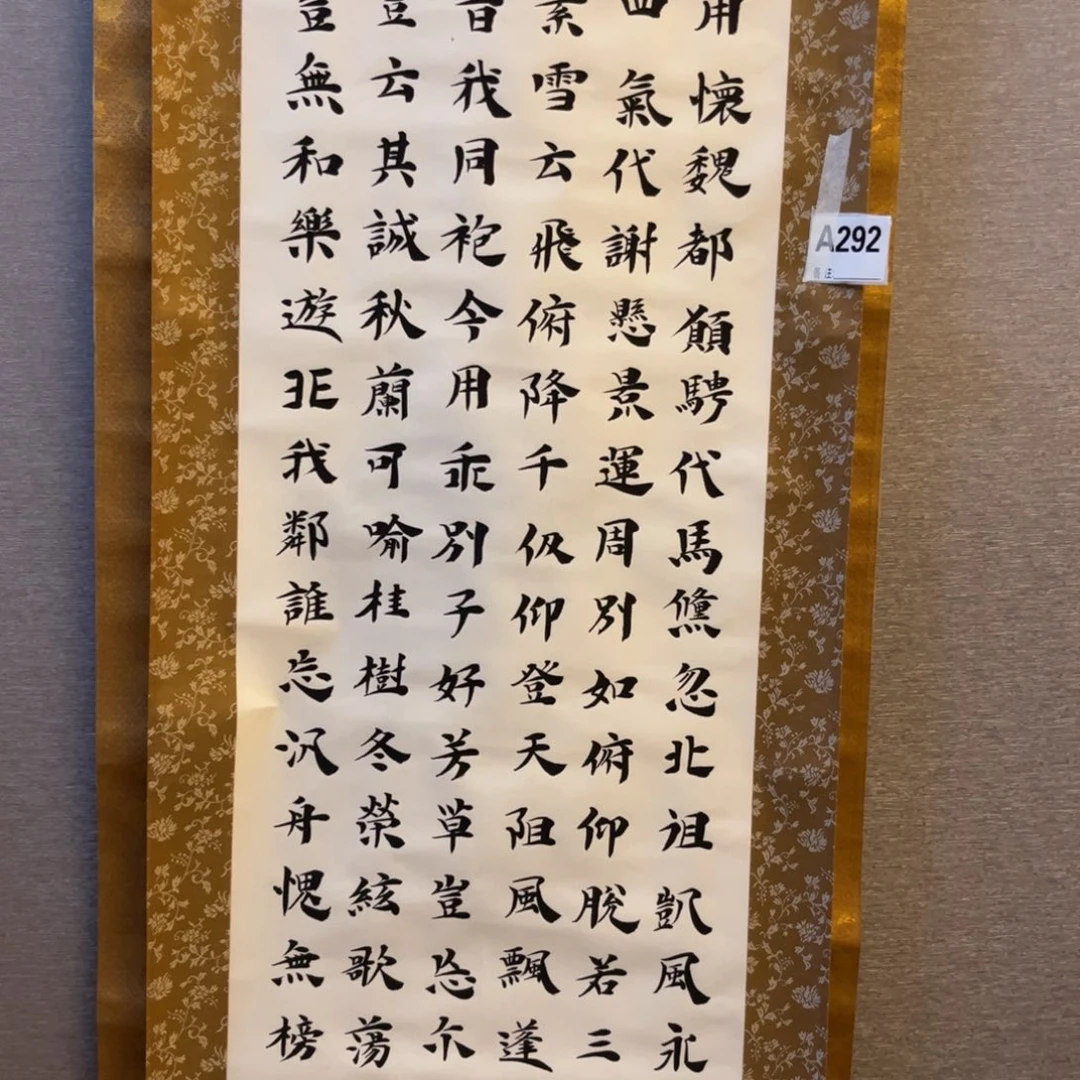 用懷魏都願騁代馬儵忽北徂凱風永
四氣代謝懸景運周別如俯仰脫若三
素雪云飛俯降千仞仰登天阻風飄蓬
昔我同袍今用乖別子好芳草豈忘尒
豈云其誠秋蘭可喻桂樹冬榮絃歌蕩
豈無和樂遊非我鄰誰忘汎舟愧無榜
A292